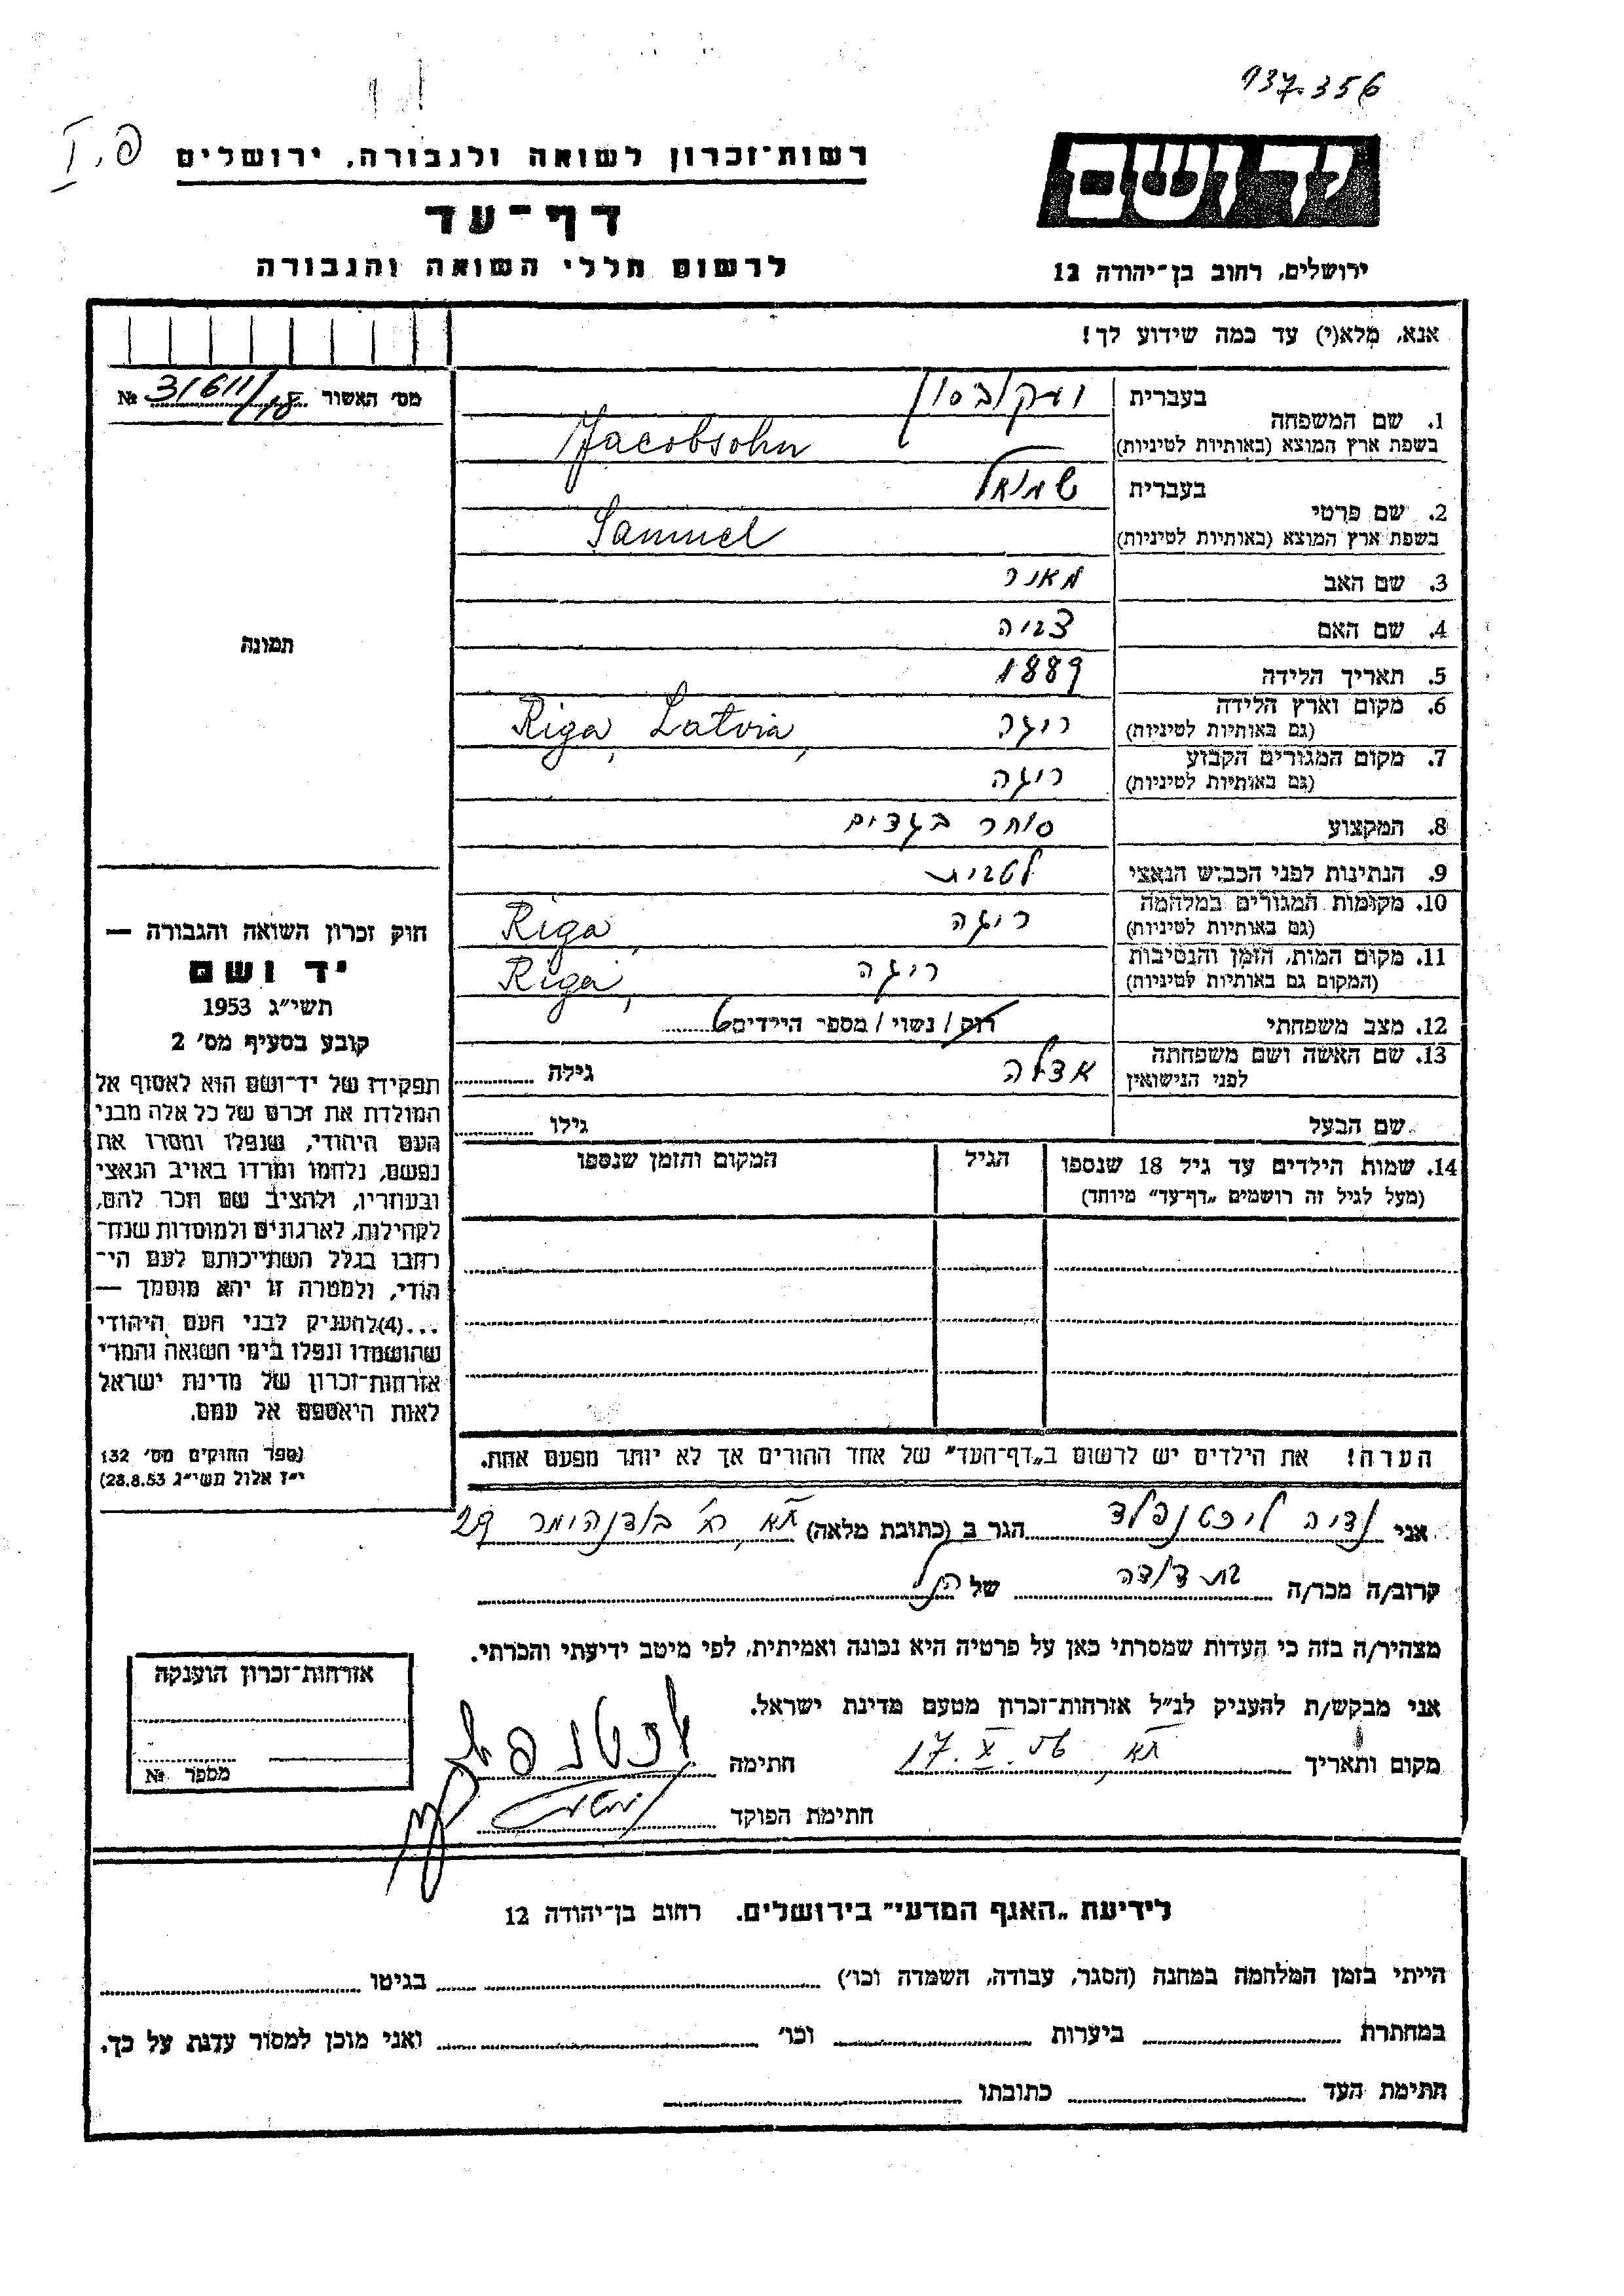 137.356
רשות־זכרון לשואה ולגבורה, ירושלים
יד ושם
דף־עד
לרשום חללי השואה והגבורה
ירושלים, רחוב בן־יהודה 12
אנא, מלא(י) עד כמה שידוע לך!
מס׳ האשור 31611/18 №
תמונה
1. שם המשפחה
בעברית יעקובסון
בשפת ארץ המוצא (באותיות לטיניות) Jacobsohn
2. שם פרטי
בעברית שמואל
בשפת ארץ המוצא (באותיות לטיניות) Samuel
3. שם האב מאיר
4. שם האם צביה
5. תאריך הלידה 1889
6. מקום וארץ הלידה ריגה Riga, Latvia,
(גם באותיות לטיניות)
7. מקום המגורים הקבוע ריגה
(גם באותיות לטיניות)
8. המקצוע סוחר בגדים
9. הנתינות לפני הכבוש הנאצי לטבית
10. מקומות המגורים במלחמה ריגה Riga,
(גם באותיות לטיניות)
11. מקום המות, הזמן והנסיבות ריגה Riga,
(המקום גם באותיות לטיניות)
12. מצב משפחתי רוק / נשוי / מספר הילדים 6
13. שם האשה ושם משפחתה אדלה גילה
לפני הנישואין
שם הבעל גילו
14. שמות הילדים עד גיל 18 שנספו הגיל המקום והזמן שנספו
(מעל לגיל זה רושמים „דף־עד” מיוחד)
חוק זכרון השואה והגבורה —
יד ושם
תשי״ג 1953
קובע בסעיף מס׳ 2
תפקידו של יד־ושם הוא לאסוף אל
המולדת את זכרם של כל אלה מבני
העם היהודי, שנפלו ומסרו את
נפשם, נלחמו ומרדו באויב הנאצי
ובעוזריו, ולהציב שם וזכר להם,
לקהילות, לארגונים ולמוסדות שנח־
רחבו בגלל השתייכותם לעם הי־
הודי, ולמטרה זו יהא מוסמך —
...(4) להעניק לבני העם היהודי
שהושמדו ונפלו בימי השואה והמרי
אזרחות־זכרון של מדינת ישראל
לאות היאספם אל עמם.
(ספר החוקים מס׳ 132
י״ז אלול תשי״ג 28.8.53)
הערה! את הילדים יש לרשום ב„דף־העד” של אחד ההורים אך לא יותר מפעם אחת.
אני נדיה ליכטנפלד הגר ב (כתובת מלאה) ת״א, רח׳ בודנהימר 29
קרוב/ה מכר/ה בת דודה של הנ״ל
מצהיר/ה בזה כי העדות שמסרתי כאן על פרטיה היא נכונה ואמיתית, לפי מיטב ידיעתי והכרתי.
אני מבקש/ת להעניק לנ״ל אזרחות־זכרון מטעם מדינת ישראל.
מקום ותאריך ת״א, 17.X.56 חתימה
חתימת הפוקד
אזרחות־זכרון הוענקה
מספר №
לידיעת „האגף המדעי” בירושלים, רחוב בן־יהודה 12
הייתי בזמן המלחמה במחנה (הסגר, עבודה, השמדה וכו׳) בגיטו
במחתרת ביערות וכו׳ ואני מוכן למסור עדות על כך.
חתימת העד כתובתו